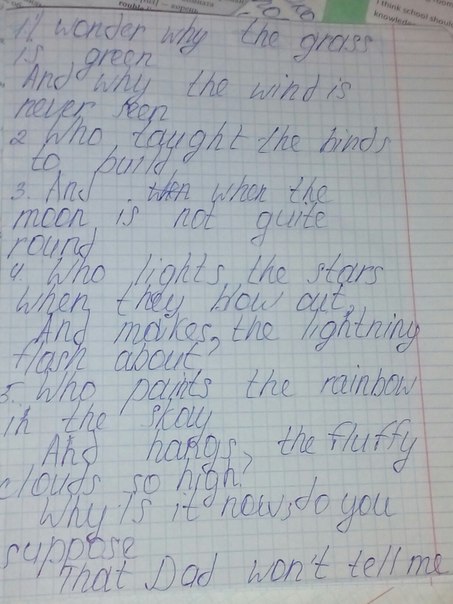 I think school shoul
knowled
1) I wonder why the grass
is green
And why the wind is
never seen
2 Who taught the binds
to build
3. And when the
moon is not quite
round
4. Who lights the stars
when they blow out,
And makes, the lightning
flash about?
5. Who paints the rainbow
in the skay
And hangs, the fluffy
clouds so high?
Why is it now, do you
suppose
That Dad won't tell me